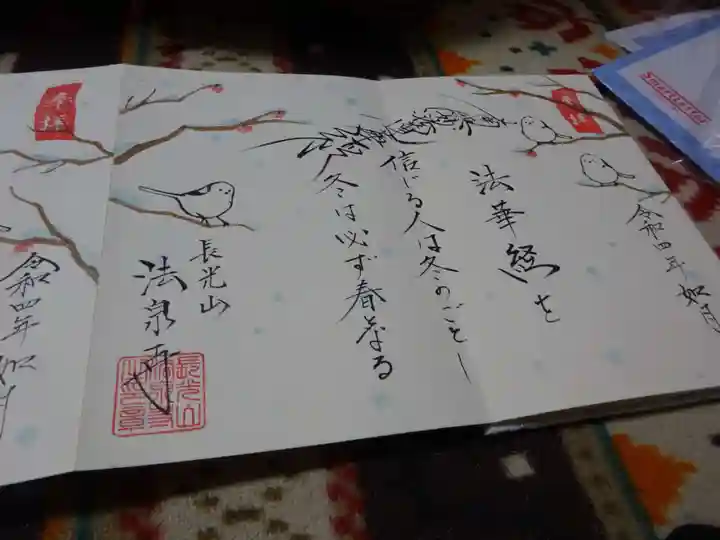 奉拝
令和四年 如月
法華経を
信じる人は冬のごとし
冬は必ず春となる
長光山
法泉寺
長光山
奉拝
令和四年 如月
Smartletter